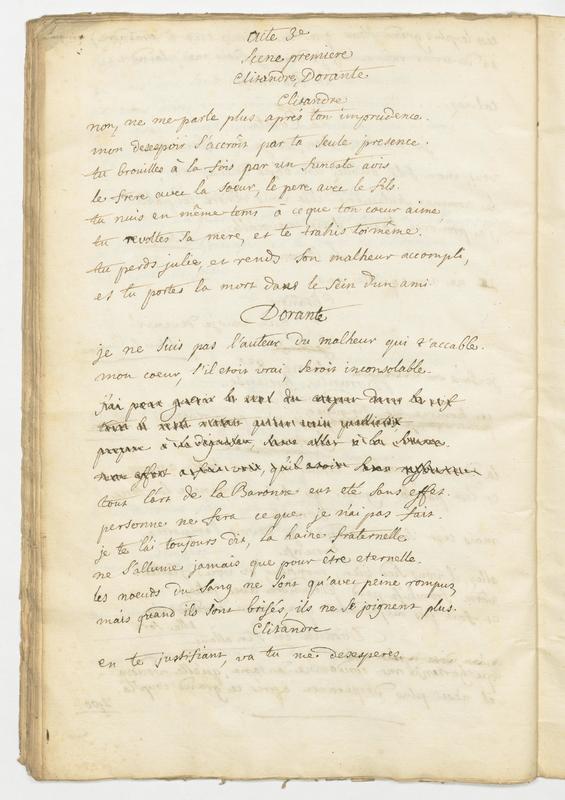 acte 3e
Scene premiere
Clitandre, Dorante
Clitandre
non, ne me parle plus aprés ton imprudence.
mon desespoir s'accroît par ta seule presence.
tu brouilles à la fois par un funeste avis
le frere avec la soeur, le pere avec le fils.
tu nuis en même tems à ce que ton coeur aime,
tu revoltes sa mere, et te trahis toi même.
tu perds julie, et rends son malheur accompli,
et tu portes la mort dans le sein d'un ami.
Dorante
je ne suis pas l'auteur du malheur qui t'accable.
mon coeur, s'il etoit vrai, seroit inconsolable.
tout l'art de la Baronne eut eté sans effet.
personne ne fera ce que je n'ai pas fait.
je te l'ai toujours dit, la haine fraternelle
ne s'allume jamais que pour être eternelle.
les noeuds du sang ne sont qu'avec peine rompus,
mais quand ils sont brisés, ils ne se joignent plus.
Clitandre
en te justifiant, va tu me desesperes